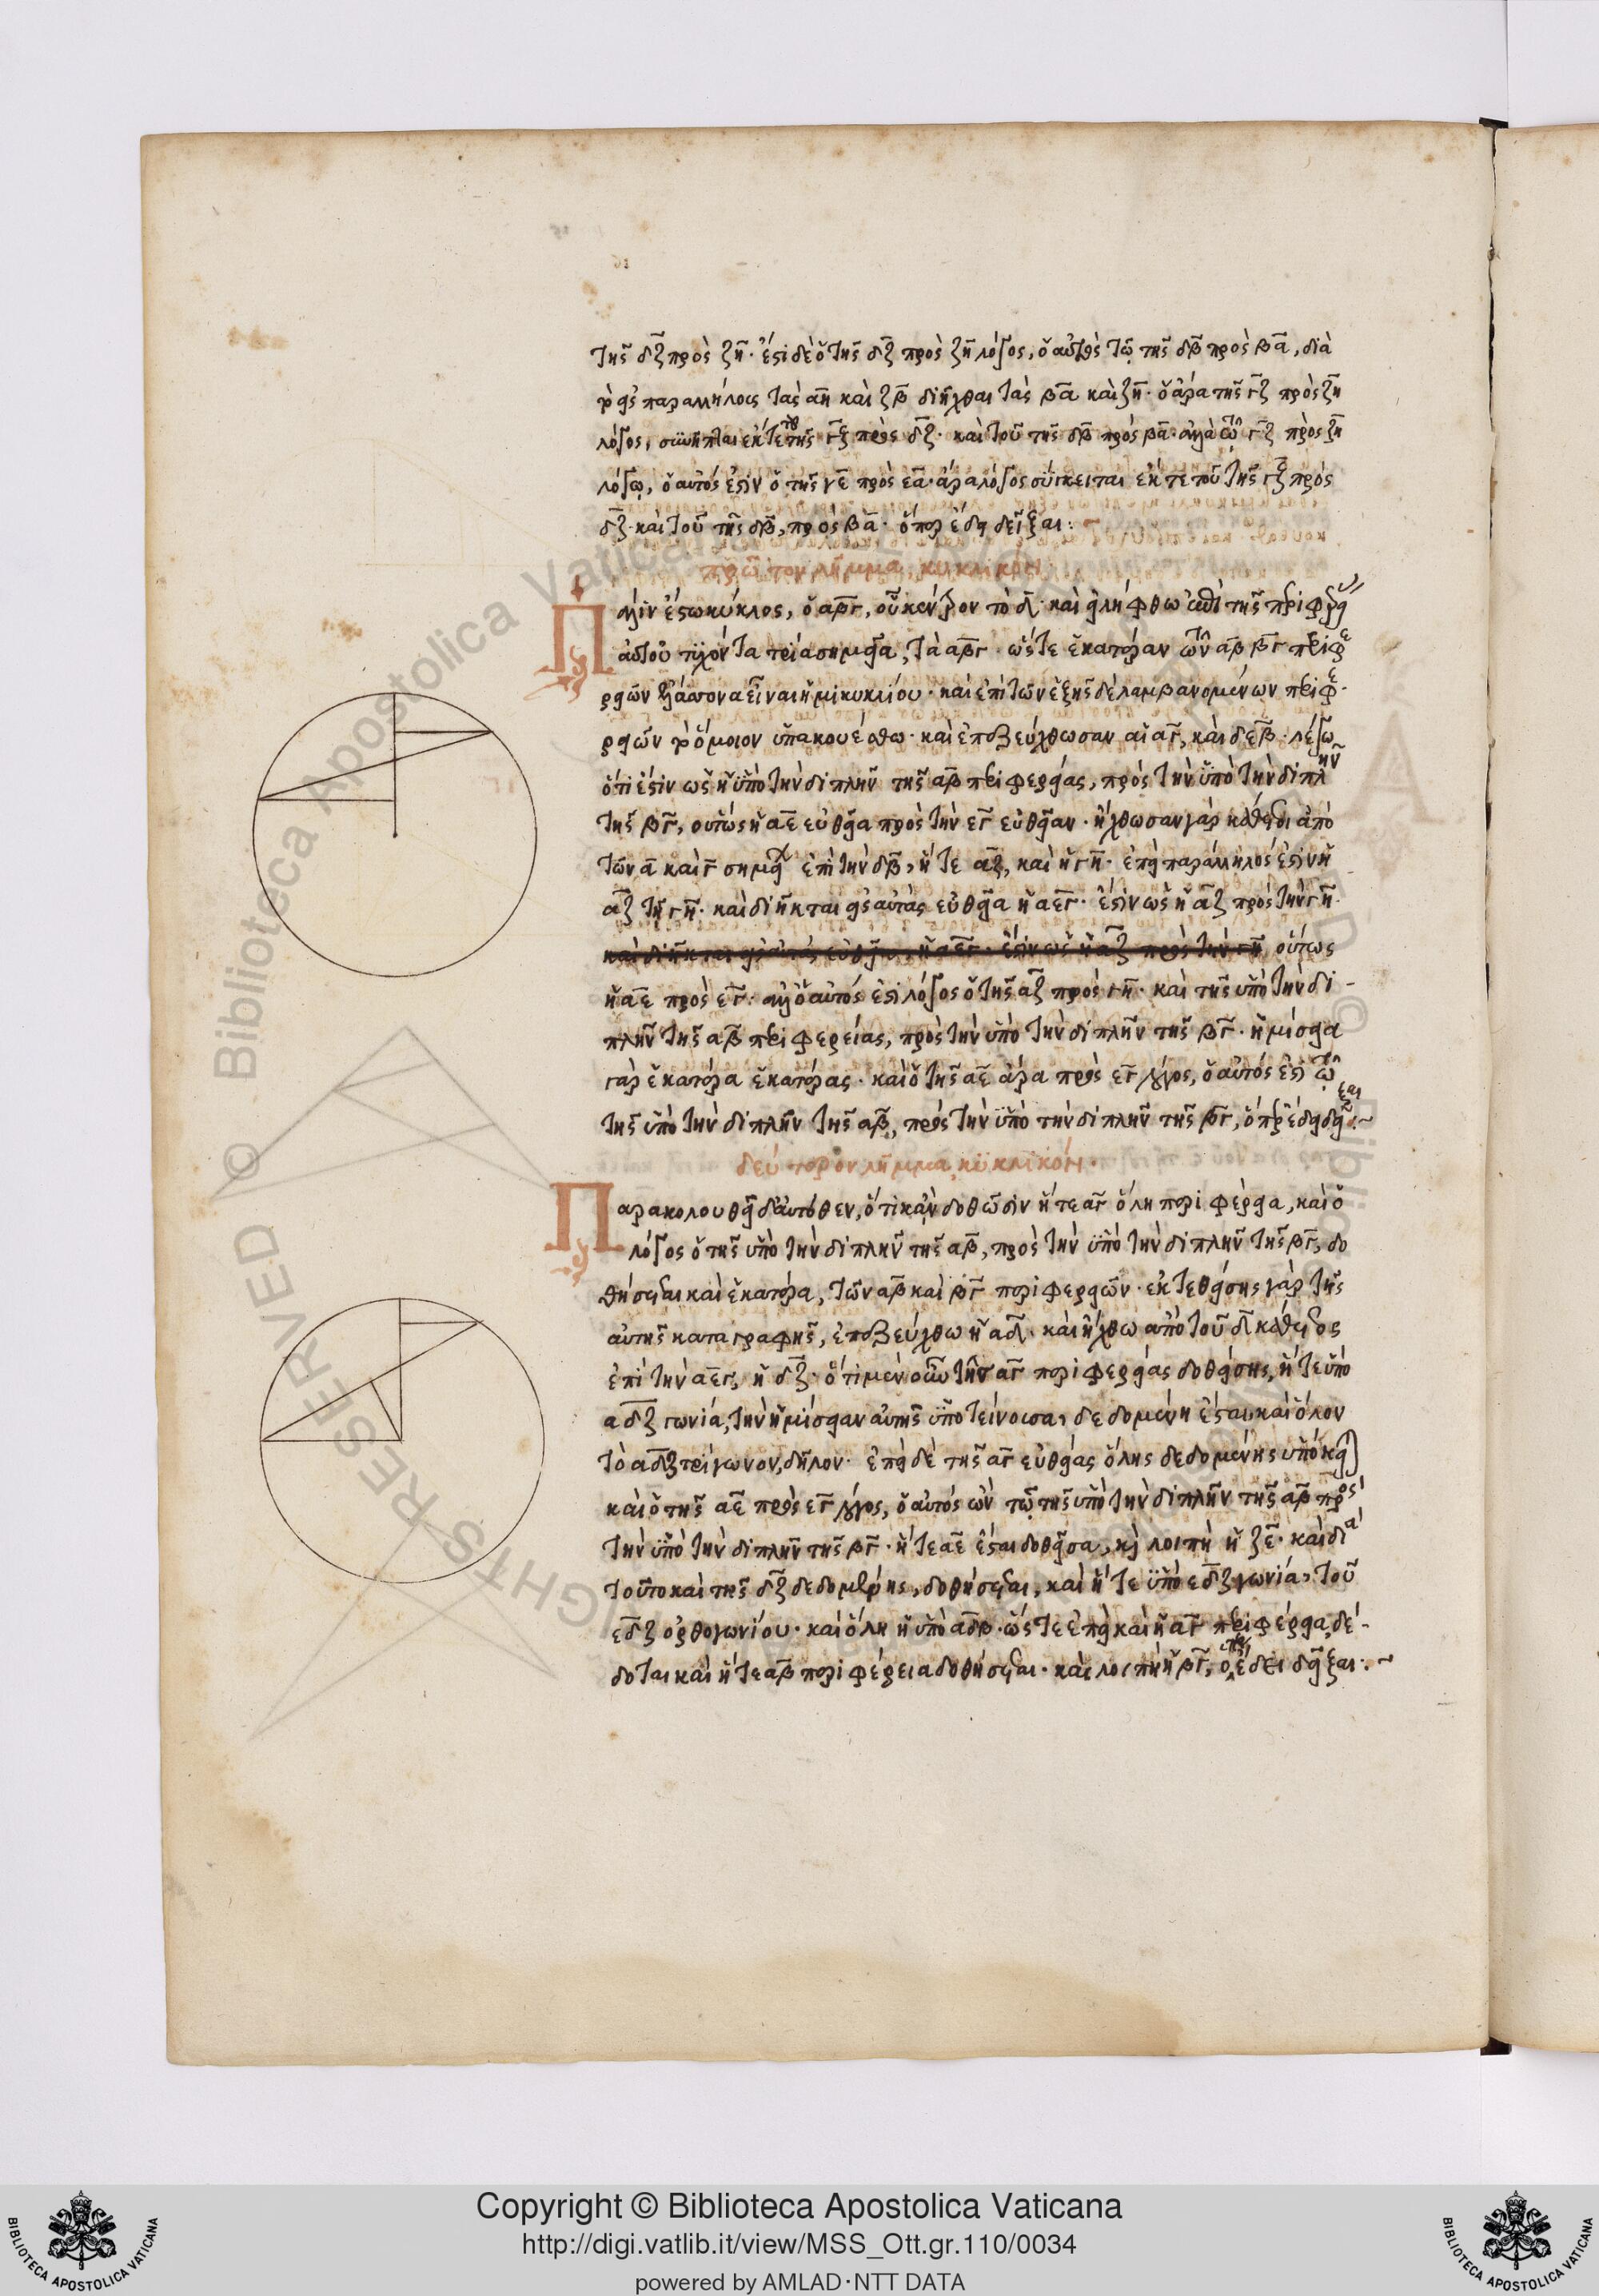 τῆς δζ πρὸς ζη· ἔστι δὲ ὁ τῆς δζ πρὸς ζη λόγος, ὁ αὐτὸς τῷ τῆς δβ πρὸς βα, διὰ
τὸ εἰς παραλλήλους τὰς αη καὶ ζβ διῆχθαι τὰς βα καὶ ζη· ὁ ἄρα τῆς γζ πρὸς ζη
λόγος, συνῆπται ἐκ τε τοῦ τῆς γζ πρὸς δζ· καὶ τοῦ τῆς δβ πρὸς βα· ἀλλὰ τῷ γζ πρὸς ζη
λόγῳ, ὁ αὐτός ἐστιν ὁ τῆς γε πρὸς εα· ἄρα λόγος σύγκειται ἐκ τε τοῦ τῆς γζ πρὸς
δζ· καὶ τοῦ τῆς δβ, πρὸς βα· ὅπερ ἔδει δεῖξαι:
πρῶτον λῆμμα κυκλικόν
Πάλιν ἔστω κύκλος, ὁ αβγ, οὗ κέντρον τὸ δ· καὶ εἰλήφθω ἐπὶ τῆς περιφερεί
αὐτοῦ τυχόντα τρία σημεῖα, τὰ αβγ· ὥστε ἑκατέραν τῶν αβ βγ περιφε
ρειῶν ἐλάσσονα εἶναι ἡμικυκλίου· καὶ ἐπὶ τῶν ἑξῆς δὲ λαμβανομένων περιφε·
ρειῶν τὸ ὅμοιον ὑπακουέσθω· καὶ ἐπεζεύχθωσαν αἱ αγ, καὶ δεβ· λέγω
ὅτι ἐστὶν ὡς ἡ ὑπὸ τὴν διπλῆν τῆς αβ περιφερείας, πρὸς τὴν ὑπὸ τὴν διπλῆν
τῆς βγ, οὕτως ἡ αε εὐθεῖα πρὸς τὴν εγ εὐθεῖαν· ἤχθωσαν γὰρ κάθετοι ἀπὸ
τῶν α καὶ γ σημεί ἐπὶ τὴν δβ, ἥ τε αζ, καὶ ἡ γη· ἐπεὶ παράλληλός ἐστιν ἡ
αζ τῇ γη· καὶ διῆκται εἰς αὐτὰς εὐθεῖα ἡ αεγ· ἔστιν ὡς ἡ αζ πρὸς τὴν γη·
καὶ διῆκται εἰς αὐτὰς εὐθεῖα ἡ αεγ· ἔστιν ὡς ἡ αζ πρὸς τὴν γη οὕτως
ἡ αε πρὸς εγ· ἀλλ' ὁ αὐτός ἐστι λόγος ὁ τῆς αζ πρὸς γη· καὶ τῆς ὑπὸ τὴν δι-
πλῆν τῆς αβ περιφερείας, πρὸς τὴν ὑπὸ τὴν διπλῆν τῆς βγ· ἡμίσεια
γὰρ ἑκατέρα ἑκατέρας· καὶ ὁ τῆς αε ἄρα πρὸς εγ λόγος, ὁ αὐτός ἐστι τῷ
τῆς ὑπὸ τὴν διπλῆν τῆς αβ, πρὸς τὴν ὑπὸ τὴν διπλῆν τῆς βγ, ὅπερ ἔδει δεῖξαι:~
δεύτερον λῆμμα κυκλικόν·
Παρακολουθεῖ δ' αὐτόθεν, ὅτι κἂν δοθῶσιν ἥ τε αγ ὅλη περιφέρεια, καὶ ὁ
λόγος ὁ τῆς ὑπὸ τὴν διπλῆν τῆς αβ, πρὸς τὴν ὑπὸ τὴν διπλῆν τῆς βγ, δο
θήσεται καὶ ἑκατέρα, τῶν αβ καὶ βγ περιφερειῶν· ἐκτεθείσης γὰρ τῆς
αὐτῆς καταγραφῆς, ἐπεζεύχθω ἡ αδ· καὶ ἤχθω ἀπὸ τοῦ δ κάθετος
ἐπὶ τὴν αεγ, ἡ δζ· ὅτι μὲν οὖν τῆς αγ περιφερείας δοθείσης, ἥ τε ὑπὸ
αδζ γωνία, τὴν ἡμίσειαν αὐτῆς ὑποτείνουσα, δεδομένη ἔσται, καὶ ὅλον
τὸ αδζ τρίγωνον, δῆλον· ἐπεὶ δὲ τῆς αγ εὐθείας ὅλης δεδομένης ὑπόκει
καὶ ὁ τῆς αε πρὸς εγ λόγος, ὁ αὐτός ὢν τῷ τῆς ὑπὸ τὴν διπλῆν τῆς αβ πρὸς
τὴν ὑπὸ τὴν διπλῆν τῆς βγ· ἥ τε αε ἔσται δοθεῖσα, καὶ λοιπὴ ἡ ζε· καὶ διὰ
τοῦτο καὶ τῆς δζ δεδομένης, δοθήσεται, καὶ ἥ τε ὑπὸ εδζ γωνία, τοῦ
εδζ ὀρθογωνίου· καὶ ὅλη ἡ ὑπὸ αδβ· ὥστε ἐπεὶ καὶ ἡ αγ περιφέρεια, δέ-
δοται καὶ ἥ τε αβ περιφέρεια δοθήσεται· καὶ λοιπὴ ἡ βγ, ὅπερ ἔδει δεῖξαι:~
Biblioteca Apostolica Vaticana
RIGHTS RESERVED ©
Copyright © Biblioteca Apostolica Vaticana
http://digi.vatlib.it/view/MSS_Ott.gr.110/0034
powered by AMLAD·NTT DATA
BIBLIOTECA APOSTOLICA VATICANA
BIBLIOTECA APOSTOLICA VATICANA